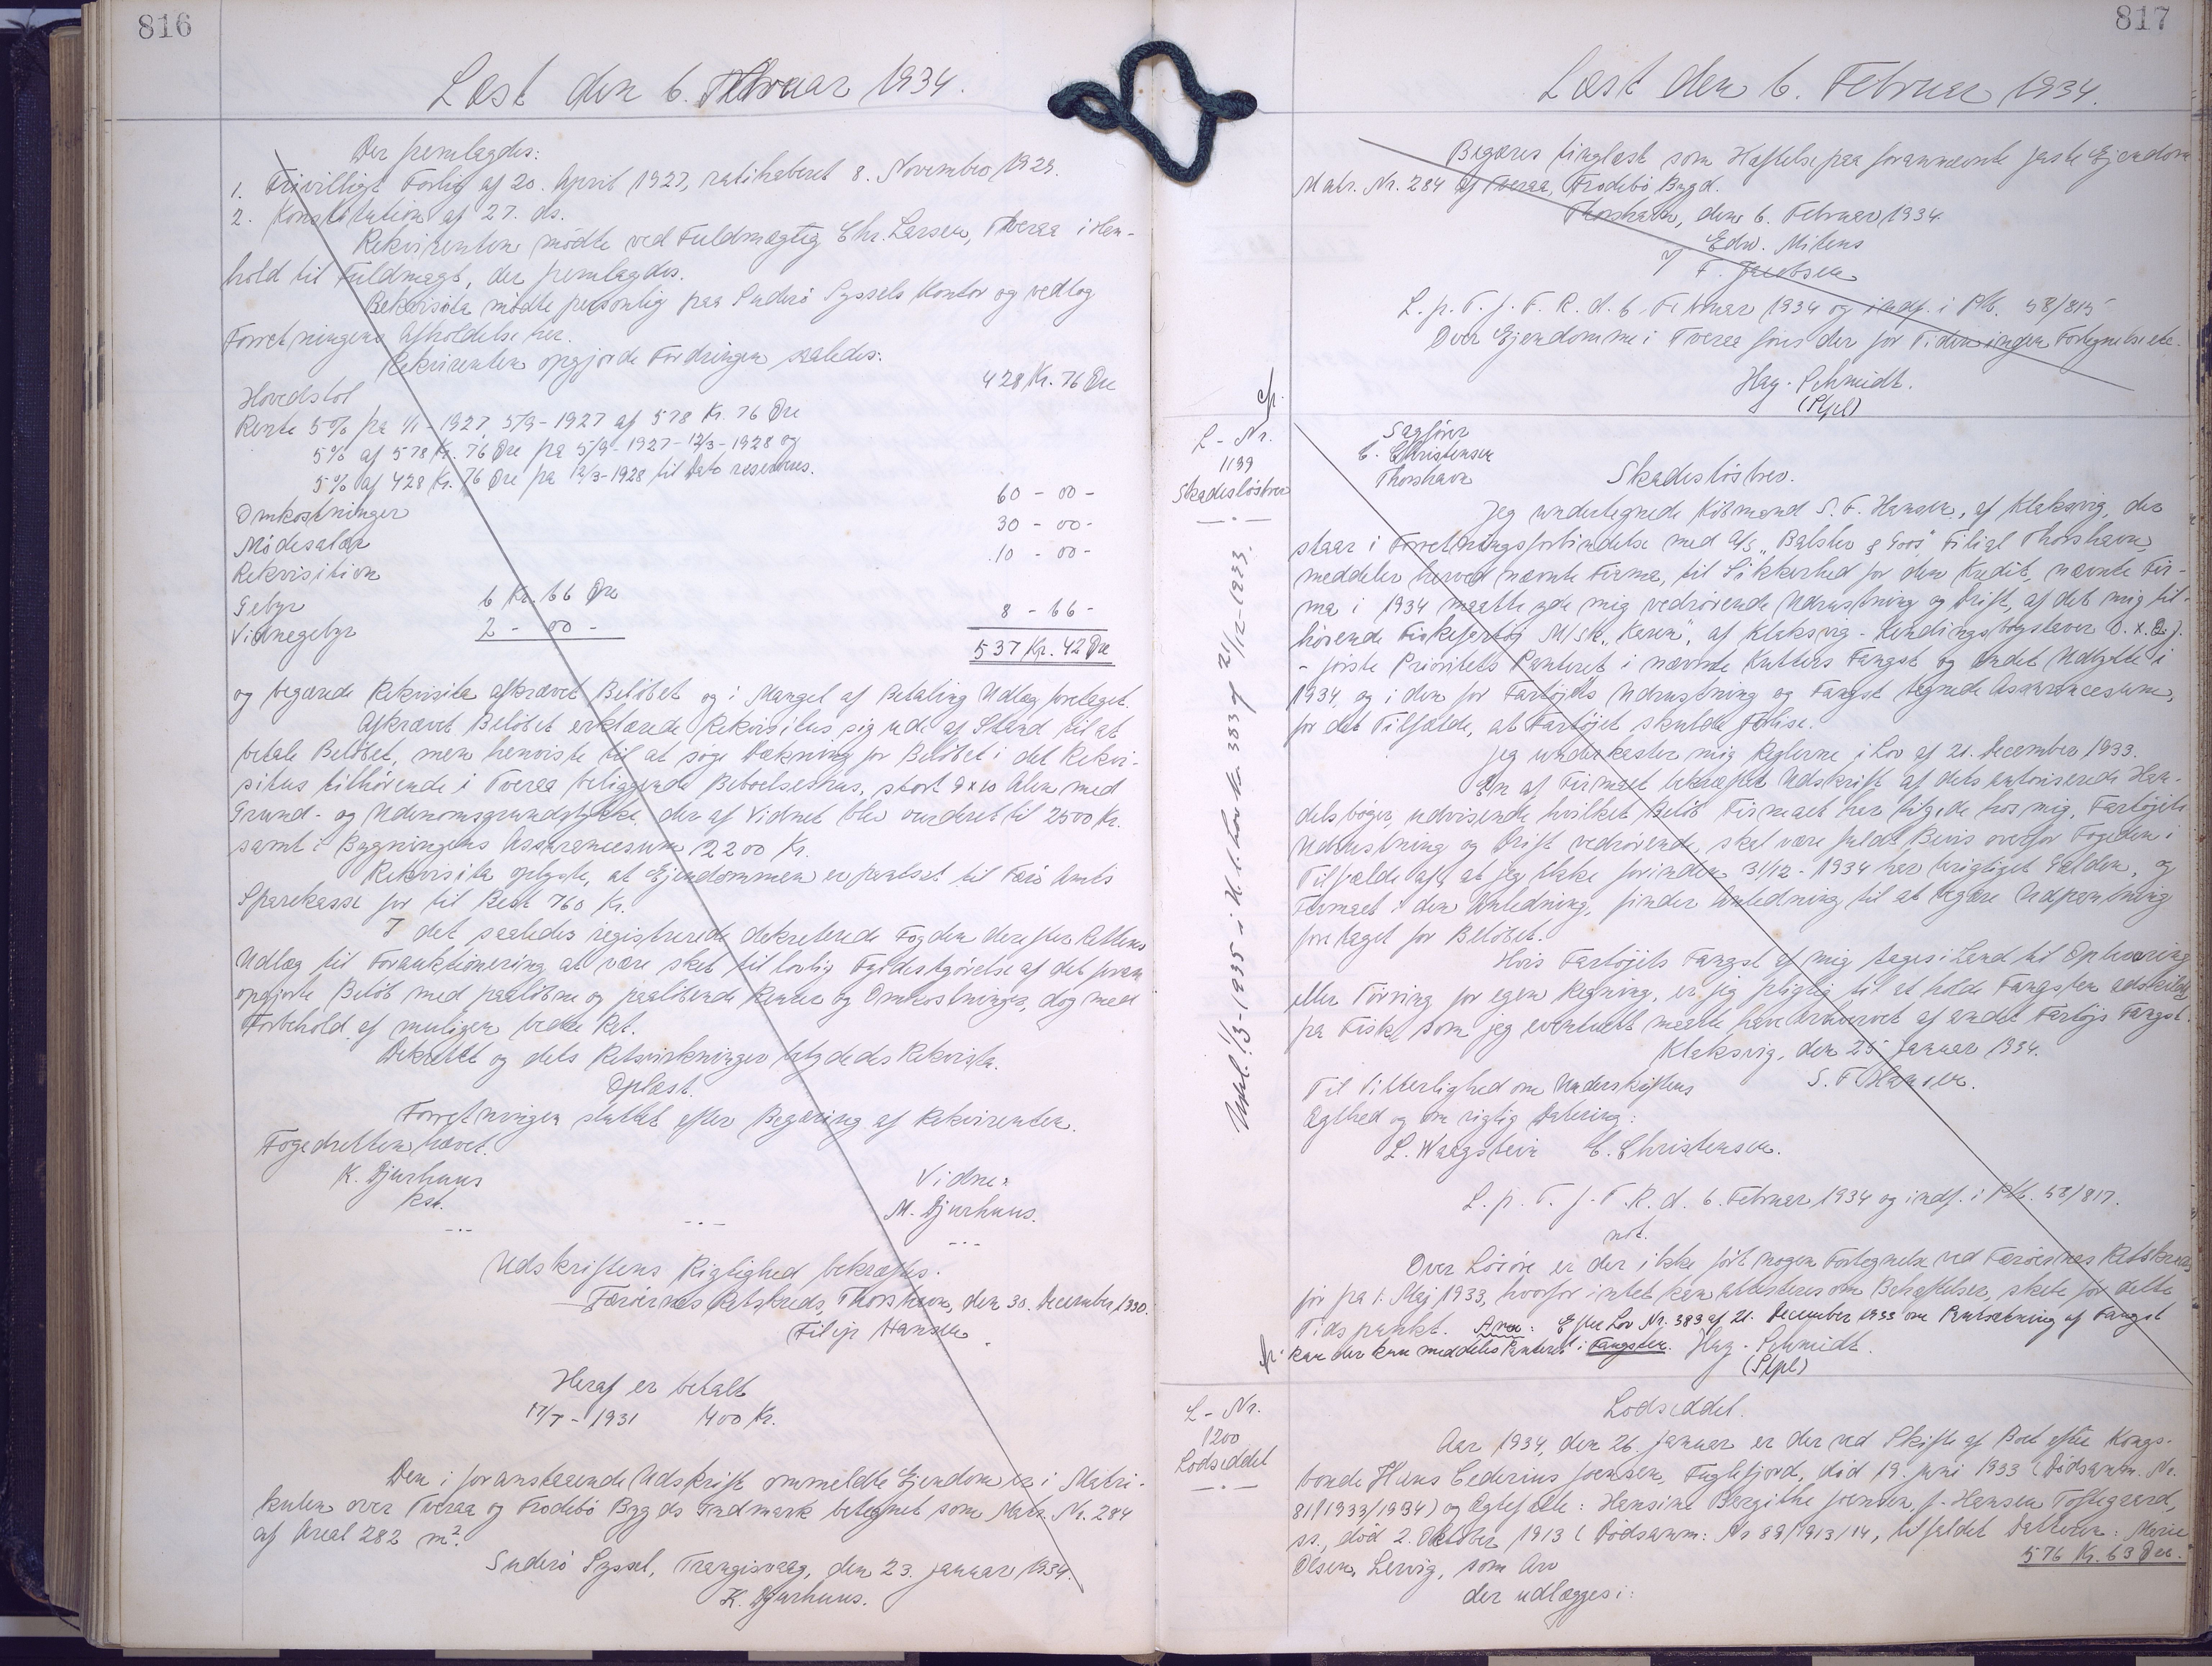 816
Læst den 6. Februar 1934.
Der fremlagdes:
1. Frivilligt Forlig af 20. April 1927, ratihaberet 8. November 1929.
2. Konstitution af 27. ds.
Rekvirenten mødte ved Fuldmægtig Chr. Larsen, Tveraa i Hen-
hold til Fuldmagt, der fremlagdes.
Rekvisita mødte personlig paa Suderø Syssels Kontor og vedtog
Forretningens Afholdelse her.
Rekvirenten opgjorde Fordringen saaledes:
Hovedstol 428 Kr. 76 Øre
Rente 5% fra 1/1-1927 5/9-1927 af 578 Kr. 76 Øre
5% af 578 Kr. 76 Øre fra 5/9-1927-12/3-1928 og
5% af 428 Kr. 76 Øre fra 12/3-1928 til Dato reserveres.
Omkostninger 60 - 00 -
Mødesalær 30 - 00 -
Rekvisition 10 - 00 -
Gebyr 6 Kr. 66 Øre
Vidnegebyr 2 - 00 - 8 - 66 -
537 Kr. 42 Øre
og begærede Rekvisita afkrævet Beløbet og i Mangel af Betaling Udlæg foretaget.
Afkrævet Beløbet erklærede Rekvisitus sig ude af Stand til at
betale Beløbet, men henviste til at søge Dækning for Beløbet i det Rekvi-
situs tilhørende i Tveraa beliggende Beboelseshus, stort 9x10 Alen med
Grund- og Udenomsgrundstykke, der af Vidnet blev vurderet til 2500 Kr.
samt i Bygningens Assurancesum 2200 Kr.
Rekvisita oplyste, at Ejendommen er pantsat til Færø Amts
Sparekasse for til Rest 760 Kr.
I det saaledes registrerede dekreterede Fogden derefter Rettens
Udlæg til Forauktionering at være sket til lovlig Fyldestgørelse af det foran
opgjorte Beløb med paaløbne og paaløbende Renter og Omkostninger, dog med
Forbehold af muligen bedre Ret.
Dekretet og dets Retsvirkninger betydedes Rekvisita.
Oplæst.
Forretningen sluttet efter Begæring af Rekvirenten.
Fogedretten hævet.
K. Djurhuus Vidne:
Kst. M. Djurhuus.
Udskriftens Rigtighed bekræftes.
Færøernes Retskreds, Thorshavn, den 30. December 1930.
Filip Hansen
Heraf er betalt
17/7-1931 400 Kr.
Den i foranstaaende Udskrift ommeldte Ejendom er i Matri-
kulen over Tveraa og Frodebø Bygds Indmark betegnet som Matr. Nr. 284
af Areal 282 m².
Suderø Syssel, Trangisvaag, den 23. Januar 1934.
K. Djurhuus.
817
Læst den 6. Februar 1934.
Begæres tinglæst som Hæftelse paa forannævnte faste Ejendom
Matr. Nr. 284 af Tveraa, Frodebø Bygd.
Thorshavn, den 6. Februar 1934
Edw. Mitens
/ F. Jacobsen
L. p. T. f. F. R. d. 6. Februar 1934 og indf. i Ptb. 58/815
Over Ejendomme i Tveraa føres der for Tiden ingen Fortegnelse etc.
Hag. Schmidt.
(Stpl)
L-Nr.
1199
Skadesløsbrev
Udsl. 1/3-1935 i H. t. Lov Nr. 383 af 21/12-1933.
Sagfører
C. Christensen
Thorshavn
Skadesløsbrev.
Jeg undertegnede Købmand S. F. Hansen, af Klaksvig, der
staar i Forretningsforbindelse med A/S "Balslev & Goos" Filial Thorshavn,
meddeler herved nævnte Firma, til Sikkerhed for den Kredit, nævnte Fir-
ma i 1934 maatte yde mig vedrørende Udrustning og Drift, af det mig til-
hørende Fiskefartøj M/sk. "Karen", af Klaksvig - Kendingsbogstaver
- første Prioritets Panteret i nævnte Kutters Fangst og andet Udbytte i
1934, og i den for Fartøjets Udrustning og Fangst tegnede Assurancesum,
for det Tilfælde, at Fartøjet skulde Forlise.
Jeg underkaster mig Reglerne i Lov af 21. December 1933.
En af Firmaet bekræftet Udskrift af dets autoriserede Han-
delsbøger, udvisende hvilket Beløb Firmaet har tilgode hos mig, Fartøjets
Udrustning og Drift vedrørende, skal være fuldt Bevis overfor Fogeden i
Tilfælde af, at jeg ikke forinden 31/12-1934 har berigtiget Gælden, og
Firmaet i den Anledning, finder Anledning til at begære Udpantning
foretaget for Beløbet.
Hvis Fartøjets Fangst af mig tages i Land til Opbevaring
eller Tørring for egen Regning, er jeg pligtig til at holde Fangsten adskildt
fra Fisk, som jeg eventuelt maatte have erhvervet af andet Fartøjs Fangst.
Klaksvig, den 25 Januar 1934.
S. F. Hansen.
Til Vitterlighed om Underskriftens
Ægthed og om rigtig Datering:
L. Waagstein C. Christensen.
L. p. T. f. F. R. d. 6. Februar 1934 og indf. i Ptb. 58/817.
nt.
Over Løsøre er der ikke ført nogen Fortegnelse ved Færøernes Retskreds
før fra 1. Maj 1933, hvorfor intet kan attesteres om Behæftelser, skete før dette
Tidspunkt. Anm: Efter Lov Nr. 383 af 21. December 1933 om Pantsætning af Fangst
kan der kun meddeles Panteret i Fangsten. Hag. Schmidt.
(Stpl)
L-Nr.
1200
Lodseddel
Lodseddel.
Aar 1934, den 26. Januar er der ved Skifte af Boet efter Kongs-
bonde Hans Cederius Joensen, Fuglefjord, død 19. Juni 1933 (Dødsanm. Nr.
81/1933/1934) og Ægtefælle: Hansine Bergithe Joensen, f. Hansen Toftegaard,
ss., død 2. Oktober 1913 (Dødsanm: Nr 89/1913/14, tilfaldet Datteren: Marie
Olsen, Lervig, som Arv 576 Kr. 63 Øre.
der udlægges i: